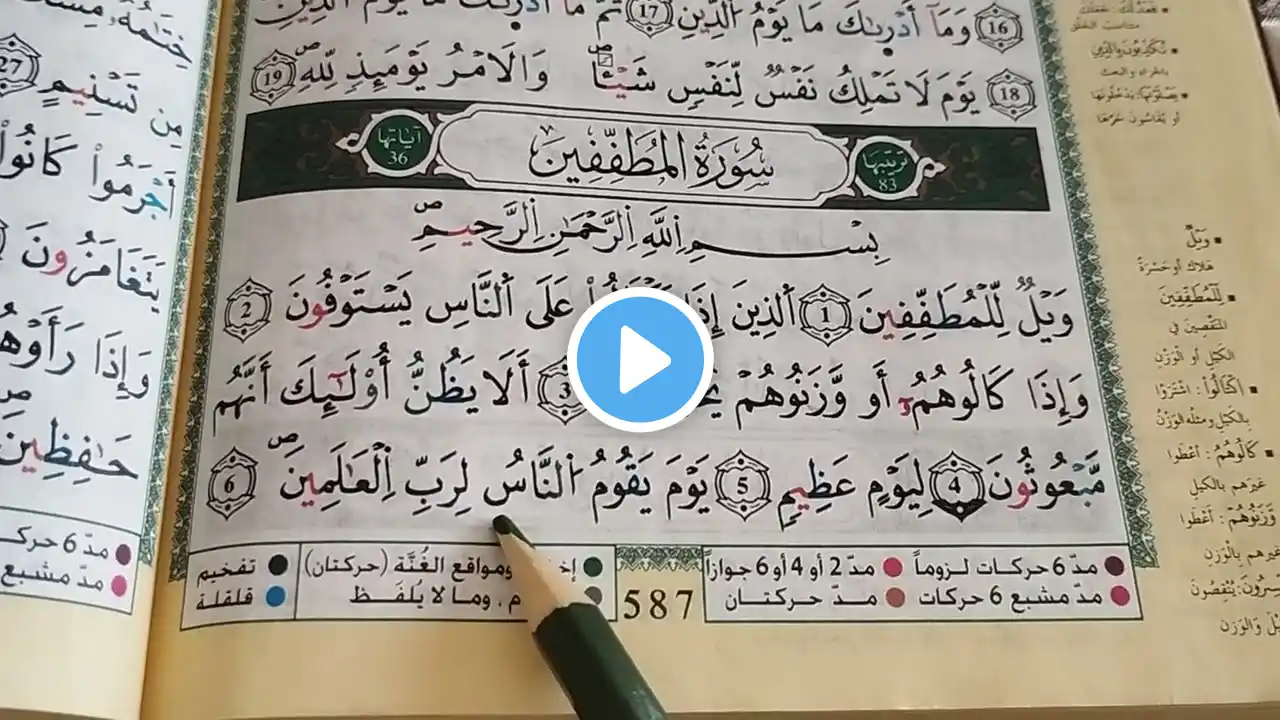 وَمَآ أَدْرٜىٰكَ مَا يَوْمُ اُ۬لدِّينِ 17 ثُمَّ مَآ أَدْرٜىٰكَ مَا يَوْمُ اُ۬لدِّينِ
16
18 يَوْمَ لَا تَمْلِكُ نَفْسٌ لِّنَفْسٍ شَيْـٔاًۖ وَالَامْرُ يَوْمَئِذٍ لِلهِۖ 19
ترتيبها 83
سُورَةُ المُطَفِّفِين
آياتها 36
بِسْمِ اِ۬للَّهِ اِ۬لرَّحْمَٰنِ اِ۬لرَّحِيمِۖ
وَيْلٌ لِّلْمُطَفِّفِينَ 1 اَ۬لذِينَ إِذَا عَلَى اَ۬لنَّاسِ يَسْتَوْفُونَ 2
وَإِذَا كَالُوهُمُۥٓ أَو وَّزَنُوهُمْ 3 أَلَا يَظُنُّ أُوْلَٰٓئِكَ أَنَّهُم
مَّبْعُوثُونَ 4 لِيَوْمٍ عَظِيمٍ 5 يَوْمَ يَقُومُ اُ۬لنَّاسُ لِرَبِّ اِ۬لْعَٰلَمِينَۖ 6
مدّ 6 حركات لزوماً مدّ 2 أو 4 أو 6 جوازاً
مدّ مشبع 6 حركات مدّ حركتان
587
ومواقع الغُنَّة (حركتان) تفخيم
وما لا يُلفَظ قلقلة
وَيْلٌ
هلاك أو حسرة
لِلْمُطَفِّفِينَ
المنقصين في
الكيل أو الوزن
اكْتَالُوا: اشتروا
بالكيل ومثله الوزن
كَالُوهُمُ: أعطوا
غيرهم بالكيل
وَزَنُوهُمْ: أعطوا
غيرهم بالوزن
يُخْسِرُونَ: يُنقصون
27
مِن تَسْنِيمٍ
أَجْرَمُواْ كَانُواْ
يَتَغَامَزُونَ
وَإِذَا
حَٰفِظِينَ
مدّ 6
مدّ مشبع